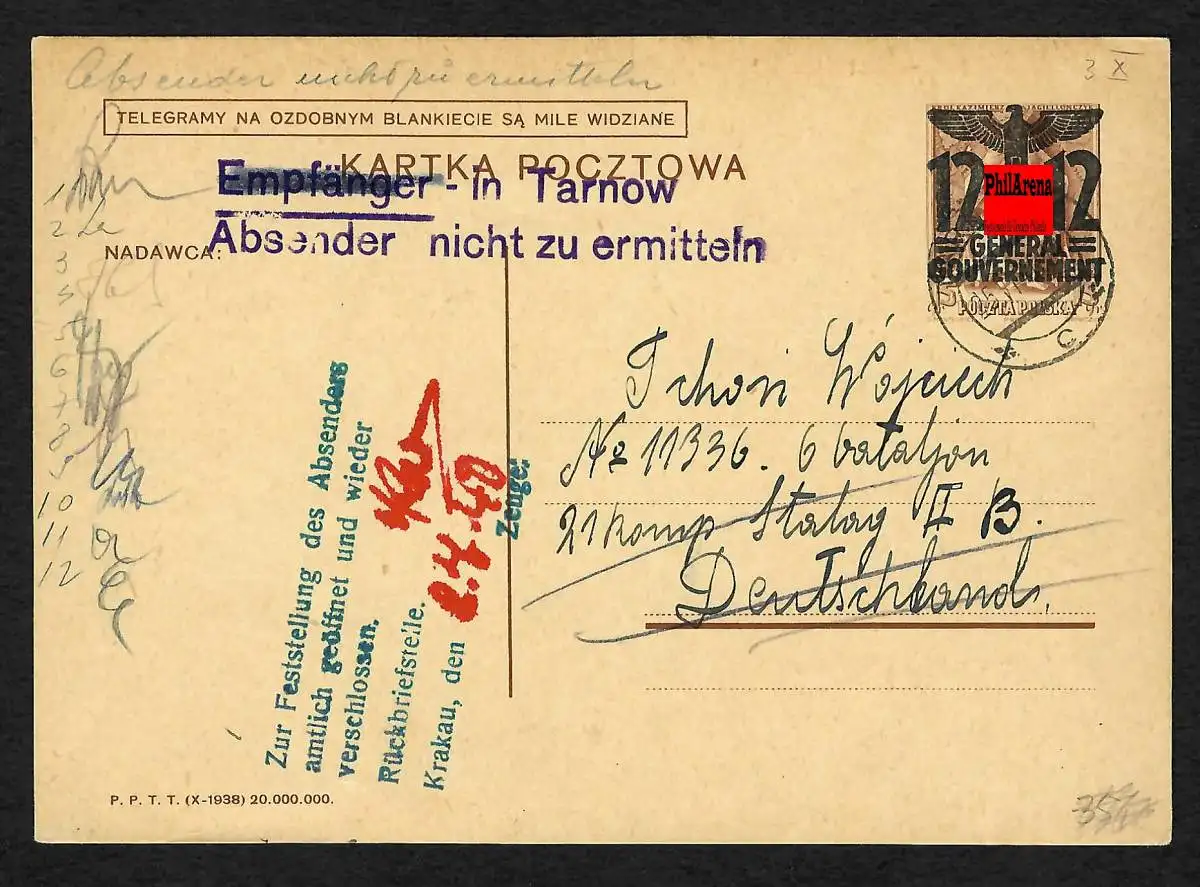 Absender nicht zu ermitteln
3 X
TELEGRAMY NA OZDOBNYM BLANKIECIE SĄ MILE WIDZIANE
KARTKA POCZTOWA
Empfänger - in Tarnow
Absender nicht zu ermitteln
NADAWCA:
12 12
PhilArena
GENERAL
GOUVERNEMENT
POCZTA POLSKA
1
2
3
5
6
7
8
10
11
12
Tchon Wójciech
№ 11336. 6 bataljon
21 komp Stalag II B.
Deutschland.
Zur Feststellung des Absenders
amtlich geöffnet und wieder
verschlossen.
Rückbriefstelle.
Krakau, den 2.4.40
Zeuge:
P. P. T. T. (X-1938) 20.000.000.